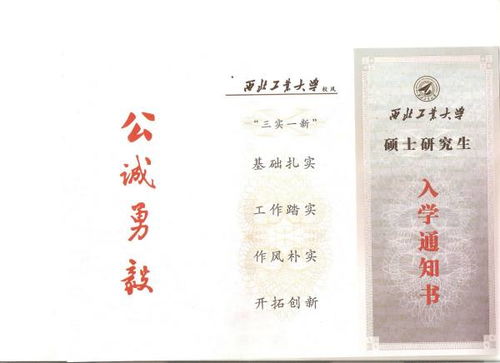 公诚勇毅
西北工业大学校风
“三实一新”
基础扎实
工作踏实
作风朴实
开拓创新
西北工业大学
硕士研究生
入学通知书